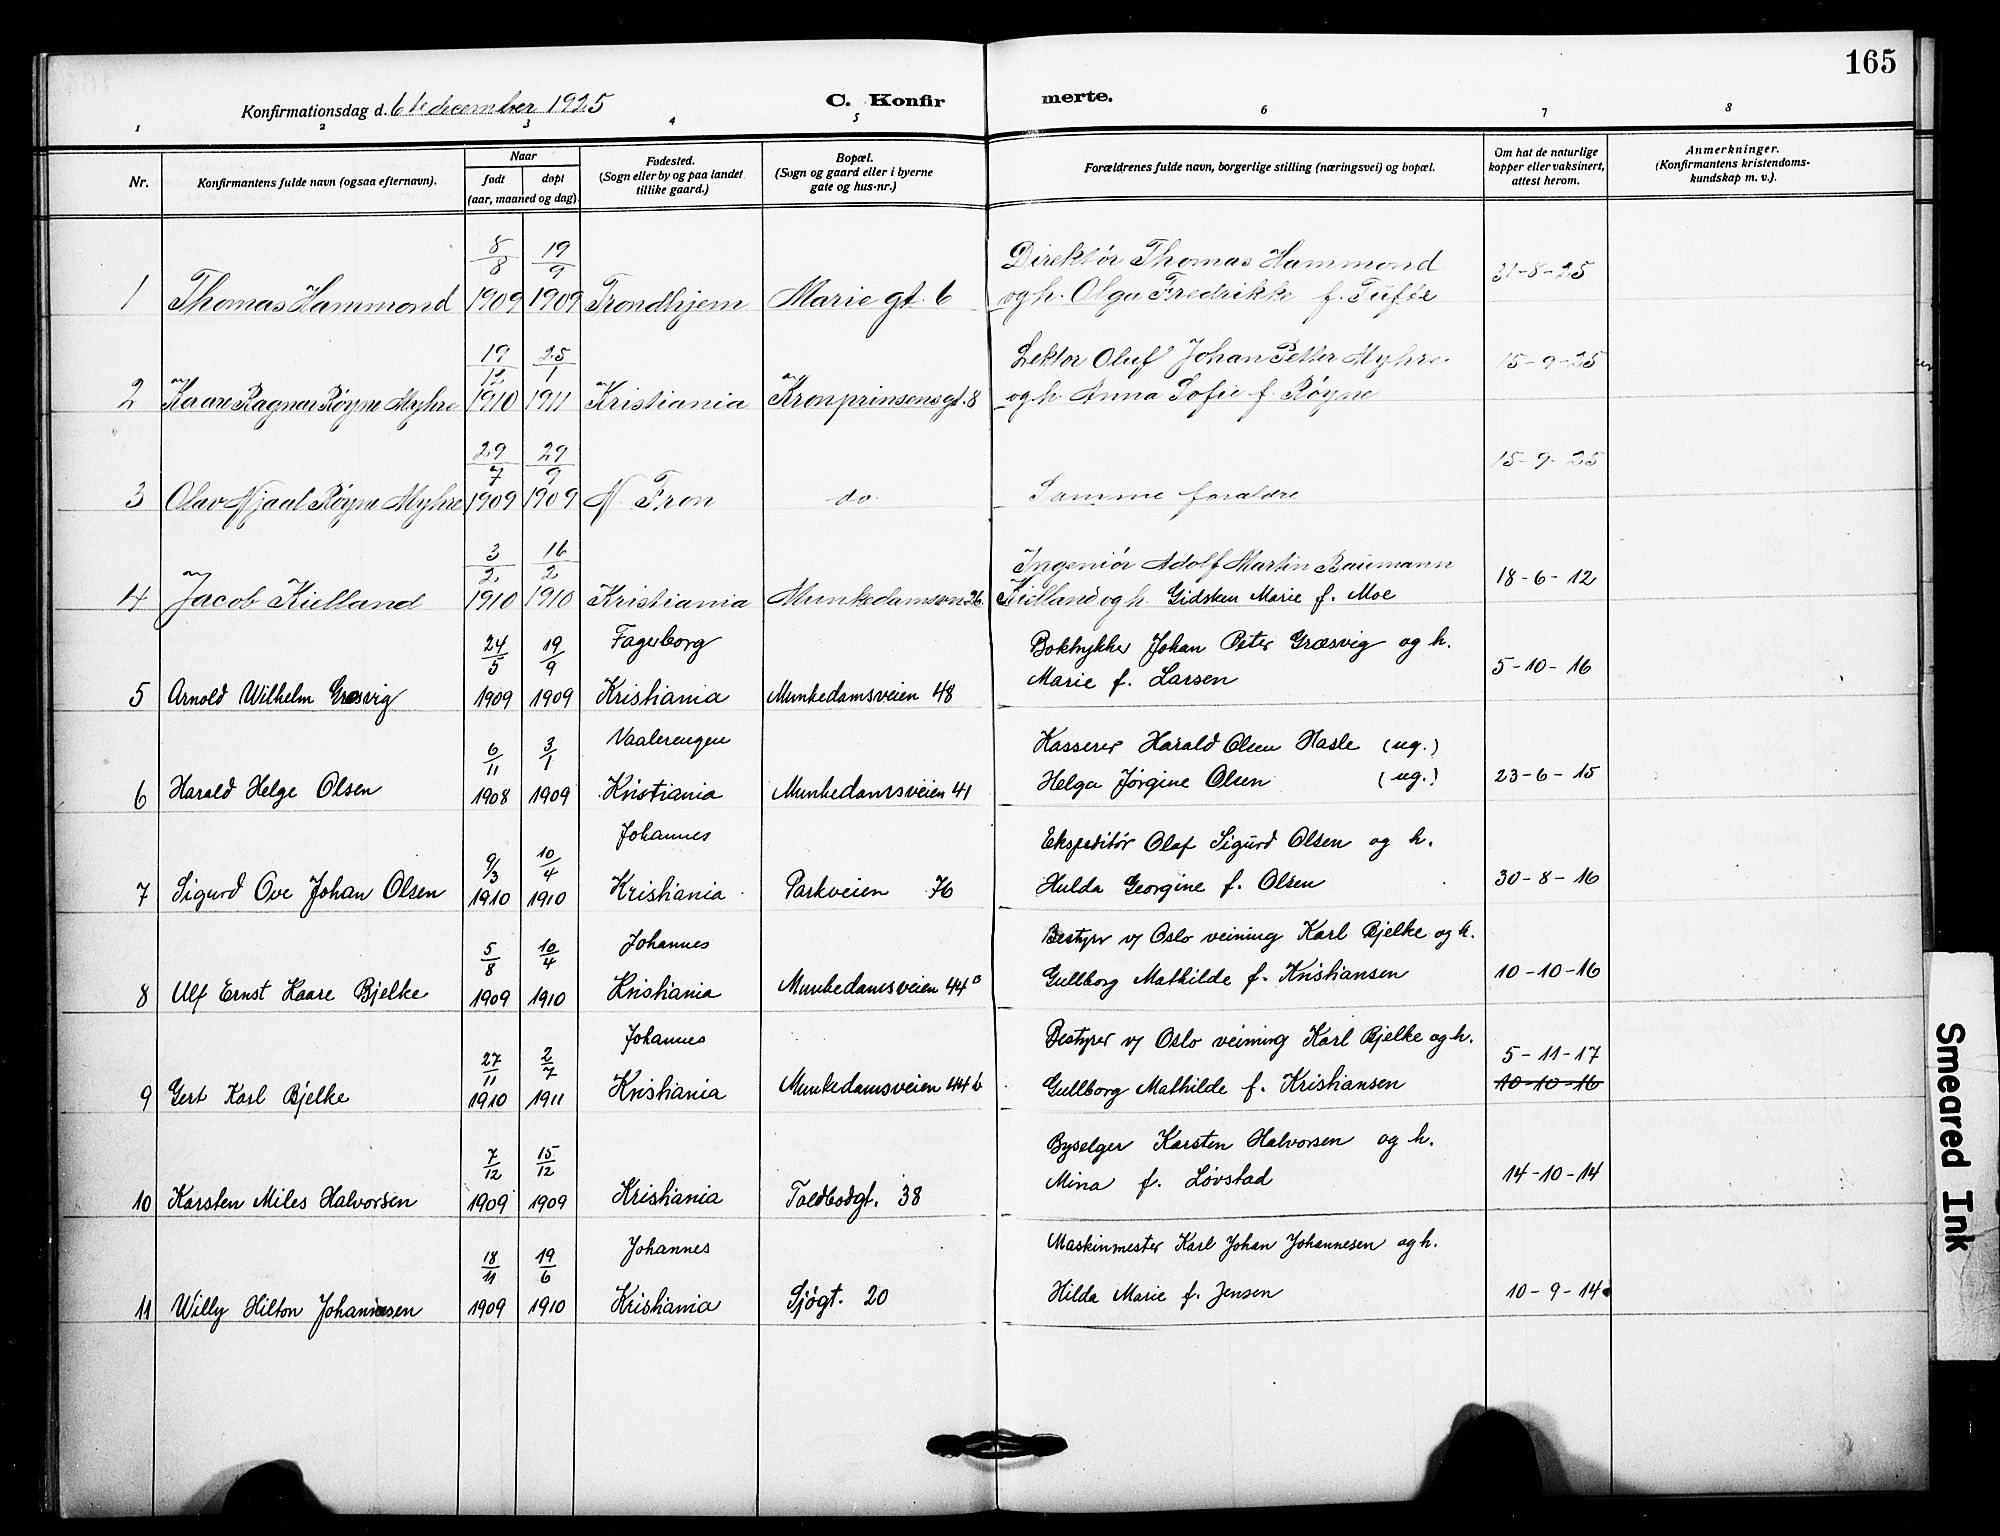 165
Konfirmationsdag d. 6te december 1925 C. Konfirmerte.
1 2 3 4 5 6 7 8
Nr. Konfirmantens fulde navn (ogsaa efternavn). Naar født døpt (aar, maaned og dag) Fødested. (Sogn eller by og paa landet tillike gaard.) Bopæl. (Sogn og gaard eller i byerne gate og hus-nr.) Forældrenes fulde navn, borgerlige stilling (næringsvei) og bopæl. Om hat de naturlige kopper eller vaksinert, attest herom. Anmerkninger. (Konfirmantens kristendomskundskap m. v.).
8/8 19/9 Direktør Thomas Hammond 31-8-25
1 Thomas Hammond 1909 1909 Trondhjem Marie gt. 6 og h. Olga Fredrikke f.
19/12 25/1 Lektor Oluf Johan Petter Myhre 15-9-25
2 Kaare Ragnar Røyne Myhre 1910 1911 Kristiania Kronprinsensgt. 8 og h. Anna Sofie f. Røyne
29/7 29/9 15-9-25
3 Olav Njaal Røyne Myhre 1909 1909 N. Fron do Samme forældre
3/2 16/2 Ingeniør Adolf Martin Baumann 18-6-12
4 Jacob Kielland 1910 1910 Kristiania Munkedamsvn 26. Kielland og h. Gidsken Marie f. Moe
24/5 19/9 Fagerborg Boktrykker Johan Peter Græsvig og h. 5-10-16
5 Arnold Wilhelm Græsvig 1909 1909 Kristiania Munkedamsveien 48 Marie f. Larsen
6/11 3/1 Vaalerengen Kasserer Harald Olsen Hasle (ug.)
6 Harald Helge Olsen 1908 1909 Kristiania Munkedamsveien 41 Helga Jørgine Olsen (ug.) 23-6-15
9/3 10/4 Johannes Ekspeditør Olaf Sigurd Olsen og h.
7 Sigurd Ove Johan Olsen 1910 1910 Kristiania Parkveien 76 Hulda Georgine f. Olsen 30-8-16
5/8 10/4 Johannes Bestyrer v/ Oslo veining Karl Bjelke og h.
8 Ulf Ernst Kaare Bjelke 1909 1910 Kristiania Munkedamsveien 44 Gullborg Mathilde f. Kristiansen 10-10-16
27/11 2/7 Johannes Bestyrer v/ Oslo veining Karl Bjelke og h. 5-11-17
9 Gert Karl Bjelke 1910 1911 Kristiania Munkedamsveien 44 b Gullborg Mathilde f. Kristiansen 10-10-16
7/12 15/12 Byselger Karsten Halvorsen og h.
10 Karsten Miles Halvorsen 1909 1909 Kristiania Toldbodgt. 38 Mina f. Løvstad 14-10-14
18/11 19/6 Johannes Maskinmester Karl Johan Johannesen og h.
11 Willy Hilton Johannesen 1909 1910 Kristiania Sjøgt. 20 Hilda Marie f. Jensen 10-9-14
Smeared Ink